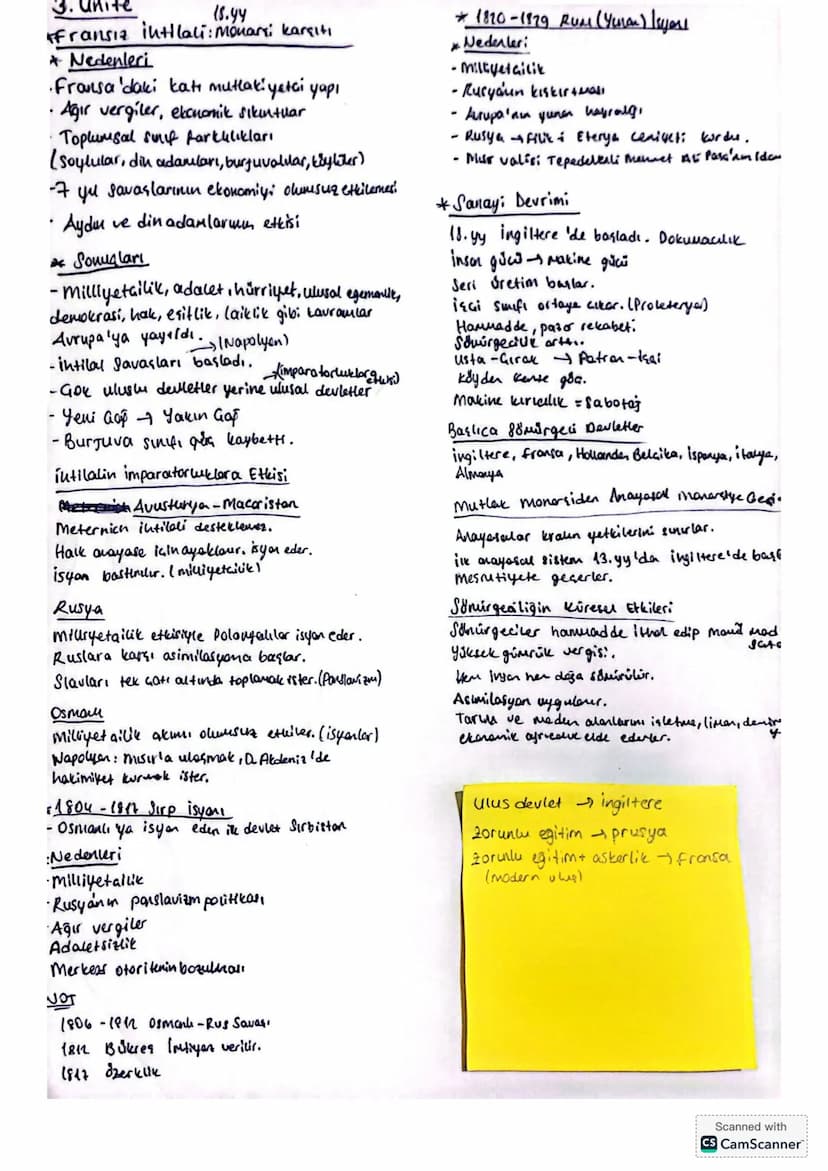 3. Ünite
18.yy
*Fransız İhtilali: Monarşi karşıtı
* Nedenleri
· Fransa'daki katı mutlakiyetçi yapı
· Ağır vergiler, ekonomik sıkıntılar
· Toplumsal sınıf farklılıkları
(soylular, din adamları, burjuvalılar, köylüler)
-7 yıl savaşlarının ekonomiyi olumsuz etkilemesi
· Aydın ve din adamlarının etkisi
* Sonuçları
- Milliyetçilik, adalet, hürriyet, ulusal egemenlik,
demokrasi, hak, eşitlik, laiklik gibi kavramlar
Avrupa'ya yayıldı.
→(Napolyon)
- İhtilal Savaşları başladı.
- Çok uluslu devletler yerine ulusal devletler
- Yeni Çağ → Yakın Çağ
- Burjuva sınıfı güç kaybetti.
İhtilalin imparatorluklara Etkisi
Avusturya-Macaristan
Meternich ihtilali desteklemez.
Halk anayasa için ayaklanır. isyan eder.
isyan bastırılır. (milliyetçilik)
Rusya
Milliyetçilik etkisiyle Polonyalılar isyan eder.
Ruslara karşı asimilasyona başlar.
Slavları tek çatı altında toplamak ister. (Panslavizm)
Osmanlı
Milliyetçilik akımı olumsuz etkiler. (isyanlar)
Napolyon: Mısır'a ulaşmak, D. Akdeniz'de
hakimiyet kurmak ister.
*1804-1817 Sırp isyanı
- Osmanlı'ya isyan eden ilk devlet Sırbistan
:Nedenleri
·Milliyetçilik
·Rusya'nın panslavizm politikası
·Ağır vergiler
Adaletsizlik
Merkezi otoritenin bozulması
NOT
1806-1812 Osmanlı-Rus Savaşı
1812 Bükreş İmtiyaz verilir.
1817 özerklik
* 1820-1829 Rum (Yunan) İsyanı
* Nedenleri
- Milliyetçilik
- Rusya'nın kışkırtması
- Avrupa'nın yunan hayranlığı
- Rusya → Filik-i Eterya cemiyeti kurdu.
- Mısır valisi Tepedelenli Mehmet Ali Paşa'nın idam
*Sanayi Devrimi
18.yy İngiltere'de başladı. Dokumacılık
İnsan gücü → Makine gücü
Seri üretim başlar.
İşçi sınıfı ortaya çıkar. (Proleterya)
Hammadde, pazar rekabeti.
Sömürgecilik arttı.
Usta-Çırak → Patron-İşçi
Köyden kente göç.
Makine kırıcılık = Sabotaj
Başlıca Sömürgeci Devletler
İngiltere, Fransa, Hollanda, Belçika, İspanya, İtalya,
Almanya
Mutlak Monarşiden Anayasal Monarşiye Geç.
Anayasalar kralın yetkilerini sınırlar.
ilk anayasal sistem 13.yy'da ingiltere'de başl
Meşrutiyete geçerler.
Sömürgeciliğin Küresel Etkileri
Sömürgeciler hammadde ithal edip mamül mad
Yüksek gümrük vergisi.
Hem insan hem doğa sömürülür.
Asimilasyon uygulanır.
Tarım ve maden alanlarını işletme, liman,
ekonomik elde ederler.
Ulus devlet → ingiltere
zorunlu eğitim → prusya
zorunlu eğitim+ askerlik → fransa
(modern ulus)
Scanned with
CS CamScanner